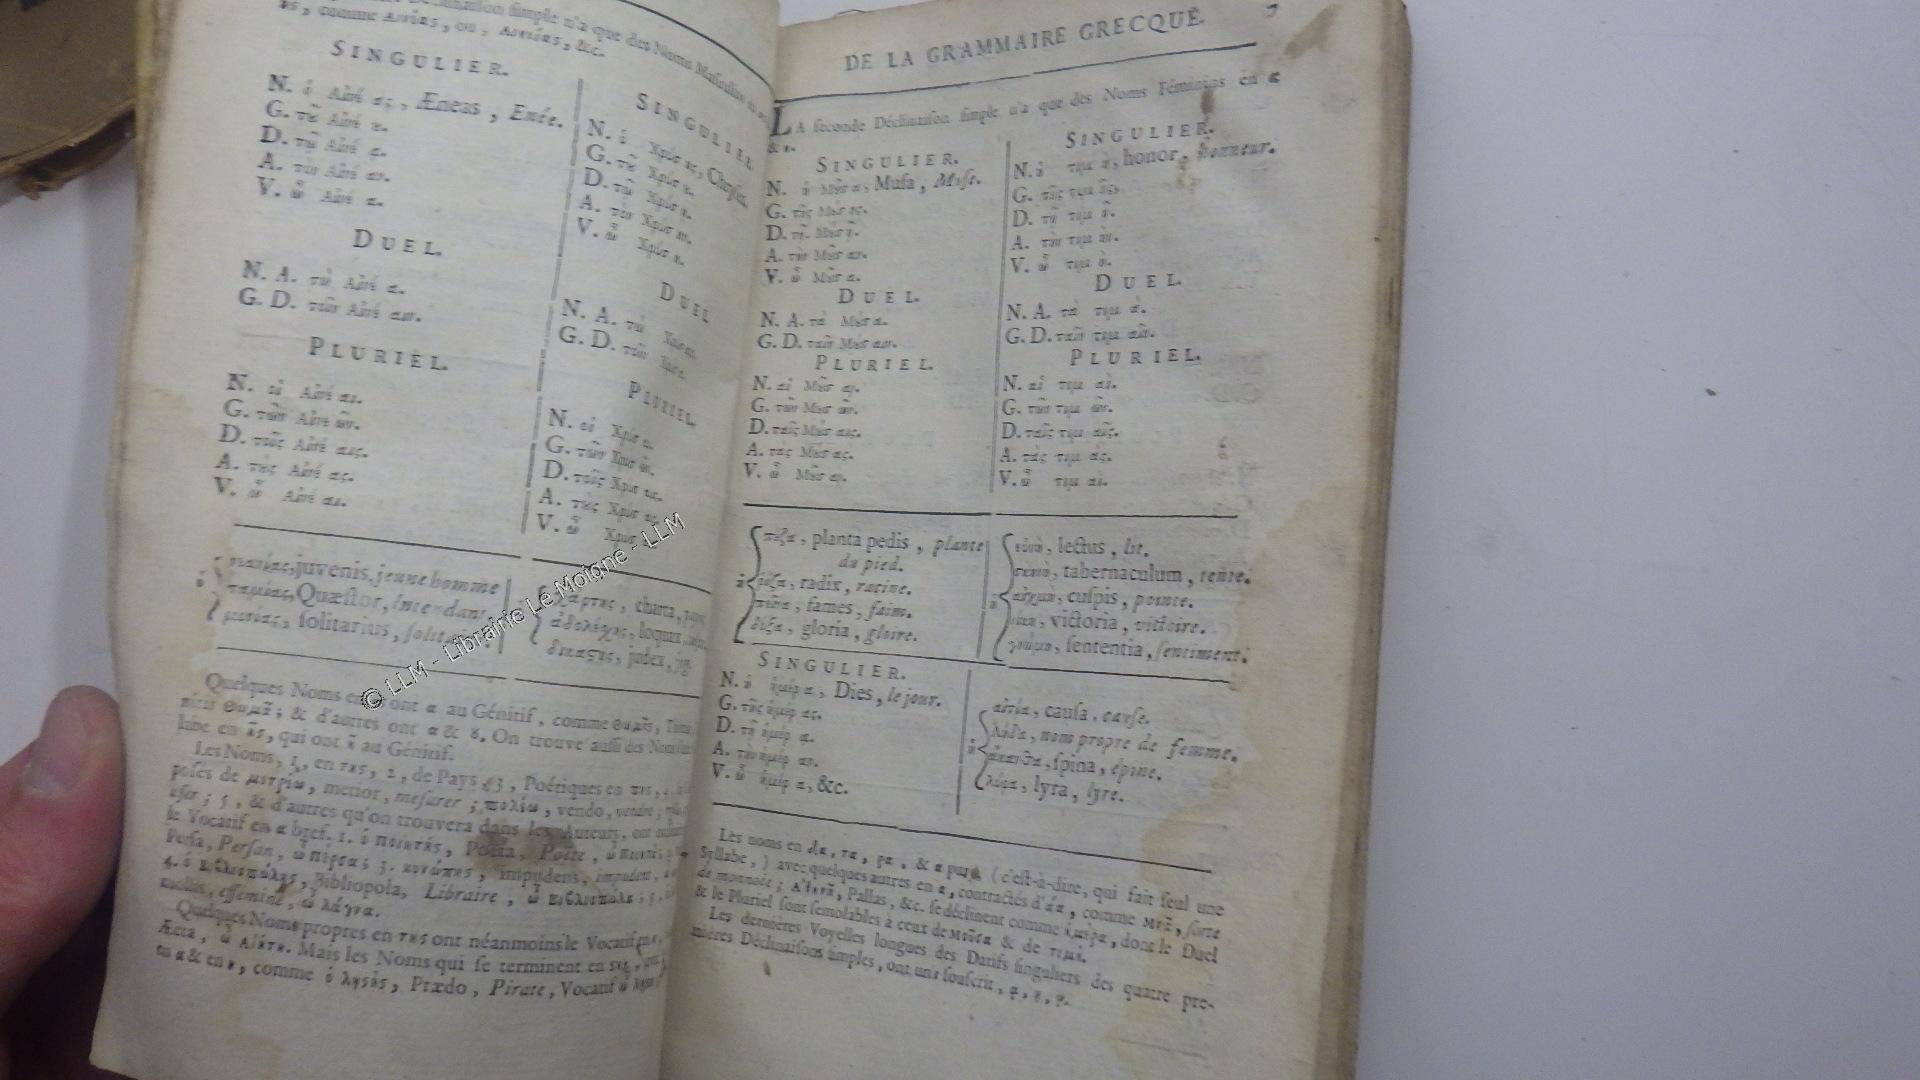 Déclinaison simple n'a que des Noms Masculins en
as, comme Αινέας, ou, &c.
SINGULIER.
N. ὁ Αἰνέ ας, Æneas, Enée.
G. τῦ Αἰνέ ȣ.
D. τῷ Αἰνέ ᾳ.
A. τὸν Αἰνέ αν.
V. ὦ Αἰνέ α.
DUEL.
N. A. τὼ Αἰνέ α.
G. D. τοῖν Αἰνέ αιν.
PLURIEL.
N. οἱ Αἰνέ αι.
G. τῶν Αἰνέ ῶν.
D. τοῖς Αἰνέ αις.
A. τὺς Αἰνέ ας.
V. ὦ Αἰνέ αι.
SINGULIER.
N. ὁ Χρύσ ης, Chryses.
G. τῦ Χρύσ ȣ.
D. τῷ Χρύσ ῃ.
A. τὸν Χρύσ ην.
V. ὦ Χρύσ η.
DUEL
N. A. τὼ
G. D. τοῖν
PLURIEL.
N. οἱ Χρύσ
G. τῶν Χρυσ ῶν.
D. τοῖς Χρύσ αις.
A. τὺς Χρύσ ας.
V. ὦ Χρύσ
juvenis, jeune homme
ταμίας, Quæstor, intendant.
solitarius,
χάρτης, charta,
ἀδολέχης, loquax,
judex,
Quelques Noms en ont α au Génitif, comme Θωμᾶς,
Θωμᾶ; & d'autres ont α & ȣ. On trouve aussi des Noms
en ῆς, qui ont ῆ au Génitif.
Les Noms, 1, en της, 2, de Pays & 3, Poétiques en πης,
posés de μετρέω, metior, mesurer; πωλέω, vendo, vendre;
user; 5, & d'autres qu'on trouvera dans les Auteurs, ont
le Vocatif en α bref. 1. ὁ ποιητής, Poëta, Poëte, ὦ ποιητά;
Persa, Persan, ὦ πέρσα; 3. κυνώπης, impudens, impudent,
4. ὁ βιβλιοπώλης, Bibliopola, Libraire, ὦ βιβλιοπῶλα; 5,
mollis, efféminé, ὦ λάγνα.
Quelques Noms propres en της ont néanmoins le Vocatif
Æeta, ὦ Αἰήτη. Mais les Noms qui se terminent en
en α & en η, comme ὁ λῃϛὴς, Prædo, Pirate, Vocatif ὦ
DE LA GRAMMAIRE GRECQUE.
LA seconde Déclinaison simple n'a que des Noms Féminins en α
& η.
SINGULIER.
N. ἡ Μῦσ α, Musa, Muse.
G. τῆς Μύσ ης.
D. τῇ Μύσ ῃ.
A. τὴν Μῦσ αν.
V. ὦ Μῦσ α.
DUEL.
N. A. τὰ Μύσ α.
G. D. ταῖν Μύσ αιν.
PLURIEL.
N. αἱ Μῦσ αι.
G. τῶν Μυσ ῶν.
D. ταῖς Μύσ αις.
A. τὰς Μύσ ας.
V. ὦ Μῦσ αι.
SINGULIER.
N. ἡ τιμ ὴ, honor, honneur.
G. τῆς τιμ ῆς,
D. τῇ τιμ ῇ.
A. τὴν τιμ ὴν.
V. ὦ τιμ ὴ.
DUEL.
N. A. τὰ τιμ ὰ.
G. D. ταῖν τιμ αῖν.
PLURIEL.
N. αἱ τιμ αὶ.
G. τῶν τιμ ῶν.
D. ταῖς τιμ αῖς.
A. τὰς τιμ ὰς.
V. ὦ τιμ αὶ.
πέζα, planta pedis, plante
du pied.
ῥίζα, radix, racine.
πεῖνα, fames, faim.
δόξα, gloria, gloire.
εὐνὴ, lectus, lit.
σκηνὴ, tabernaculum, tente.
αἰχμὴ, cuspis, pointe.
νίκη, victoria, victoire.
γνώμη, sententia, sentiment.
SINGULIER.
N. ἡ ἡμέρ α, Dies, le jour.
G. τῆς ἡμέρ ας.
D. τῇ ἡμέρ ᾳ.
A. τὴν ἡμέρ αν.
V. ὦ ἡμέρ α, &c.
αἰτία, causa, cause.
λήδα, nom propre de femme.
ἄκανθα, spina, épine.
λύρα, lyra, lyre.
Les noms en δα, θα, ρα, & α pura (c'est-à-dire, qui fait seul une
Syllabe,) avec quelques autres en α, contractés d'άα, comme μνᾶ, sorte
de monnoie; Α'θηνᾶ, Pallas, &c. se déclinent comme ἡμέρα, dont le Duel
& le Pluriel sont semblables à ceux de Μοῦσα & de τιμὴ.
Les dernières Voyelles longues des Datifs singuliers des quatre pre-
mières Déclinaisons simples, ont un ι souscrit, ᾳ, ῃ, ῳ.
© LLM - Librairie Le Moigne - LLM